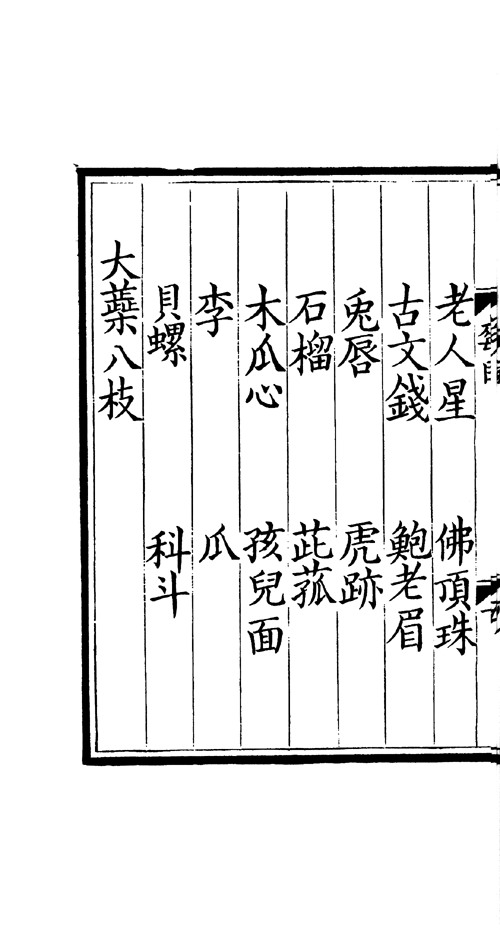 老人星 佛頂珠
古文錢 鮑老眉
兎唇 虎跡
石榴 茈菰
木瓜心 孩兒面
李 瓜
貝螺 科斗
大蘂八枝